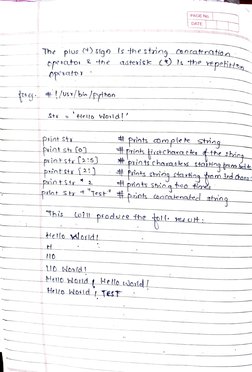 PAGE No.
DATE
The plus (+) sign is the string concatenation
operator & the asterisk (*) is the repetition
operator.
for eg. #!/usr/bin/python
str = 'Hello World!'
print str # prints complete string
print str [0] # prints first character of the string
print str [2:5] # prints characters starting from 3rd to
print str [2:] # prints string starting from 3rd charac
print str * 2 # prints string two times
print str + "Test" # prints concatenated string
This will produce the foll. result:
Hello World!
H
llo
llo World!
Hello World! Hello World!
Hello World! TEST